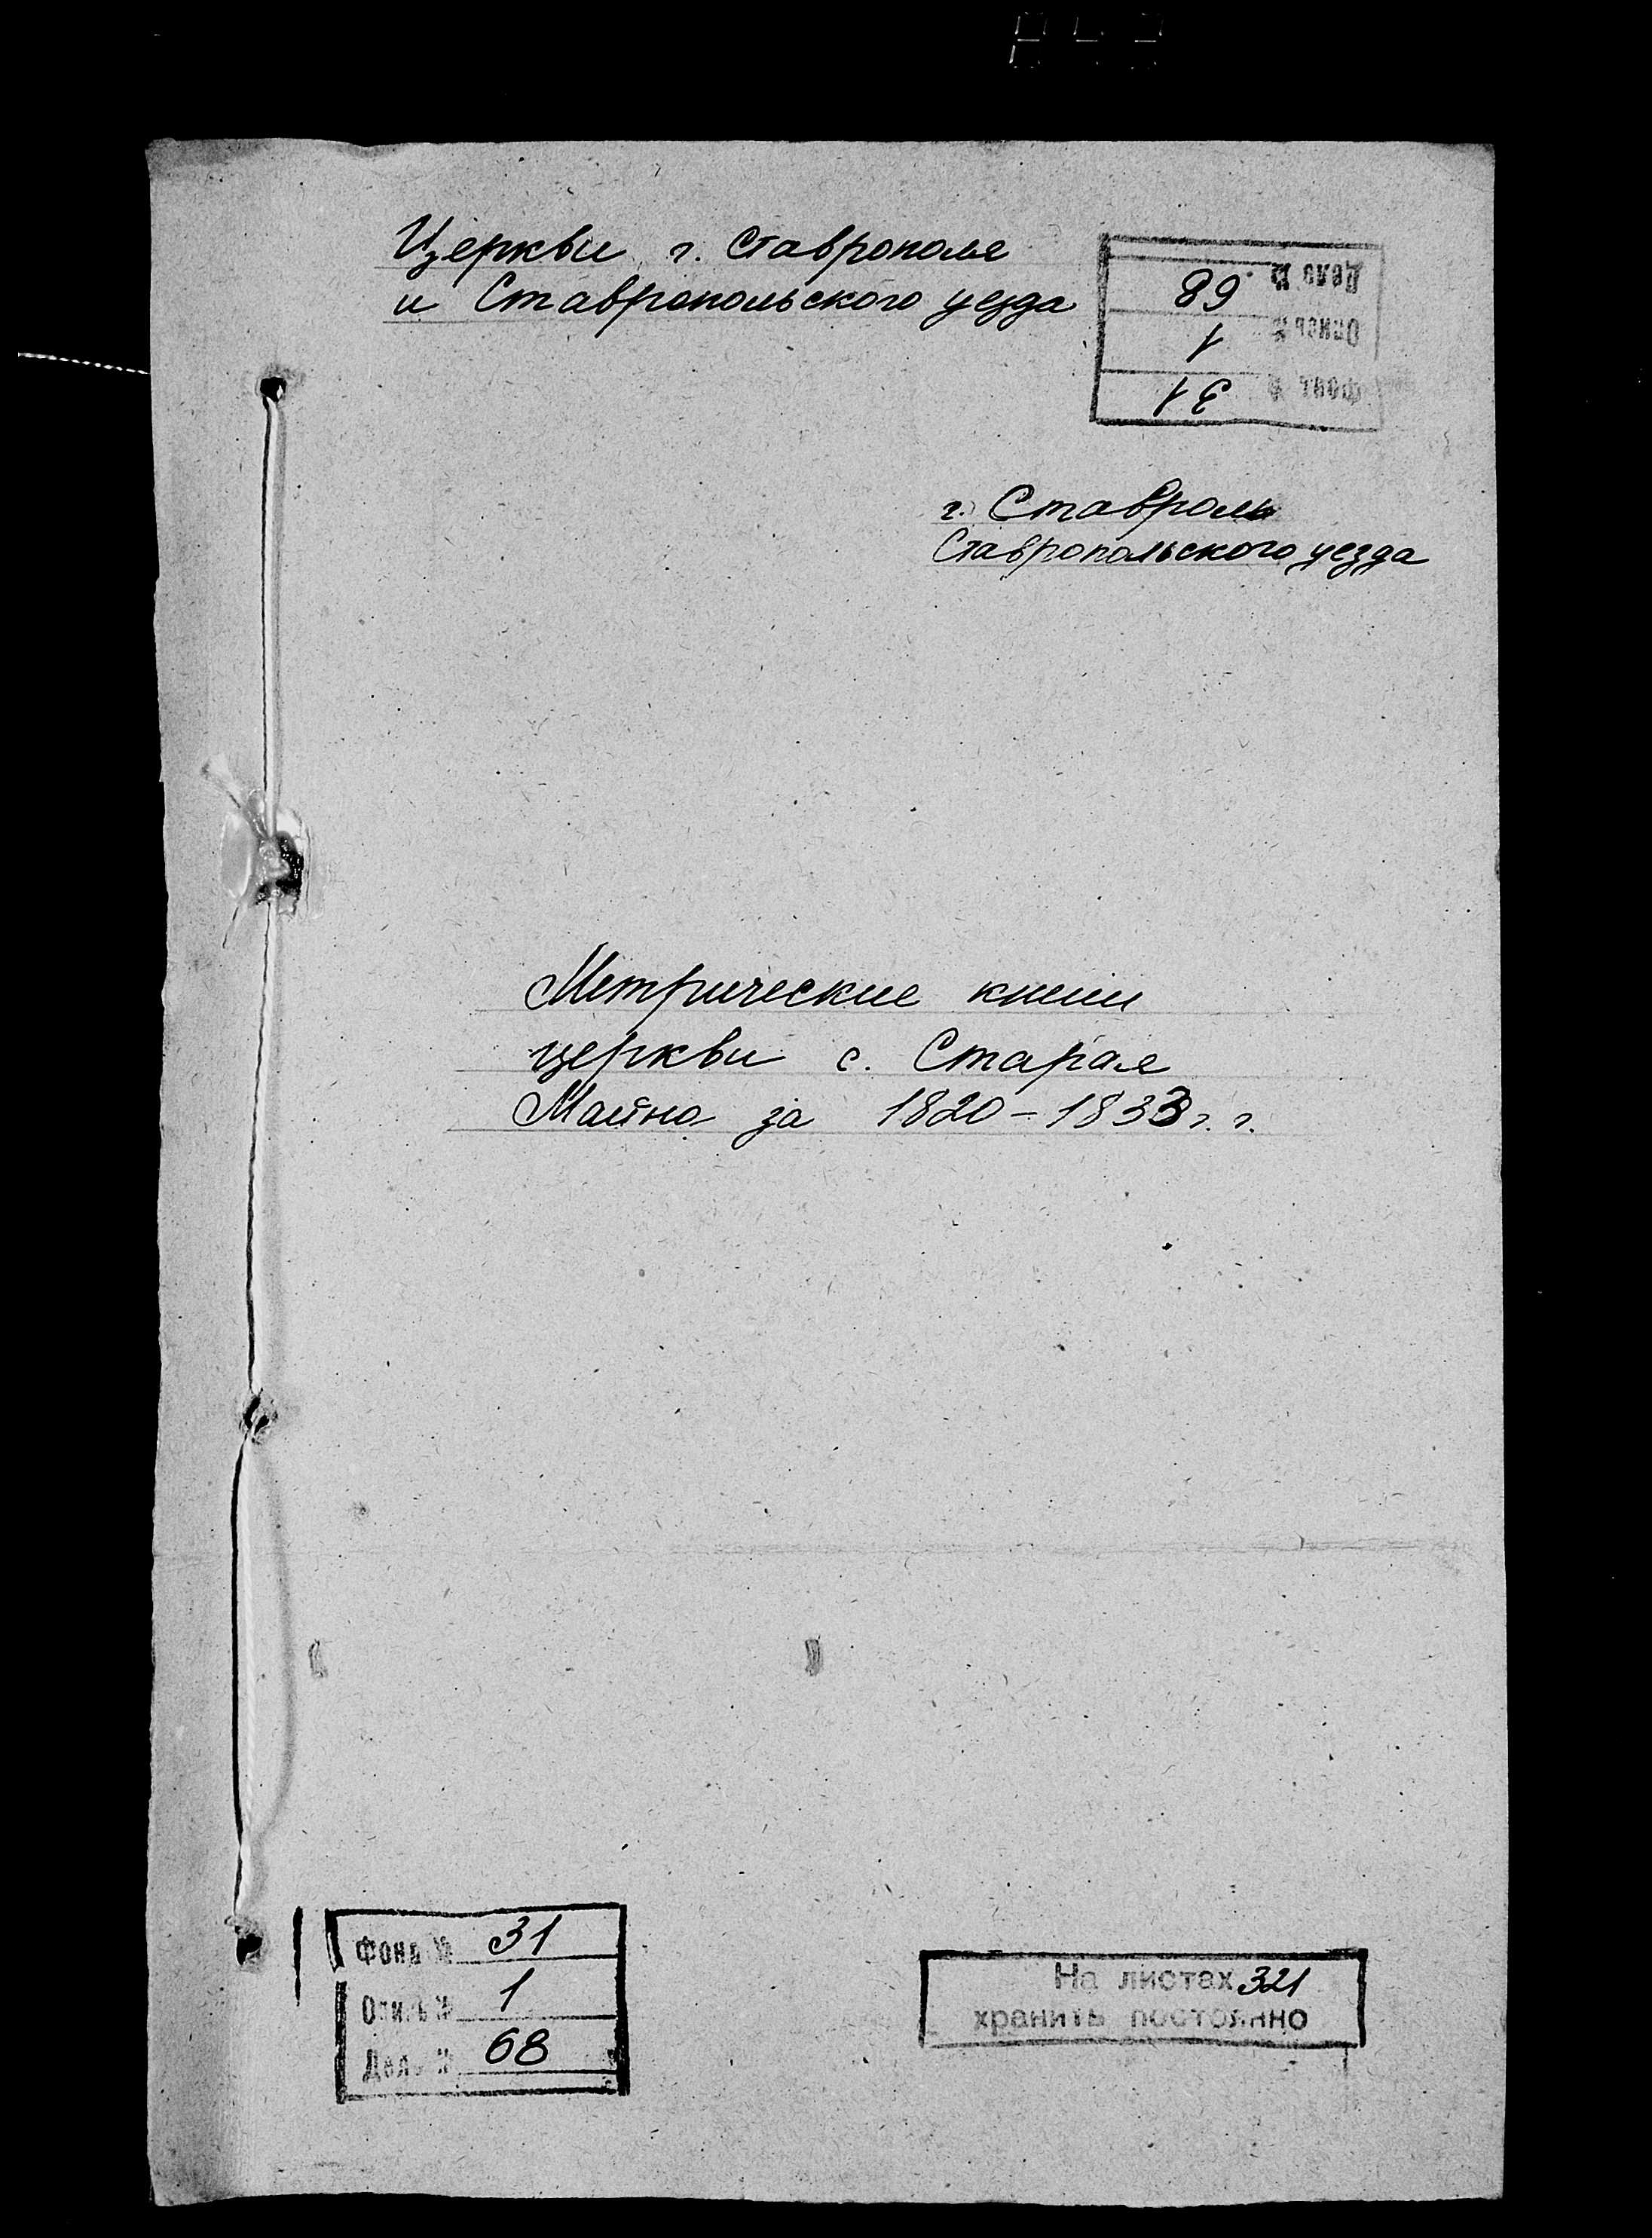 Церкви г. Ставрополя
и Ставропольского уезда
Дело № 68
Опись № 1
Фонд № 31
г. Ставроль
Ставропольского уезда
Метрические книги
церкви с. Старая
Майна за 1820-1833 г. г.
Фонд № 31
Опись № 1
Дело № 68
На листах 321
хранить постоянно